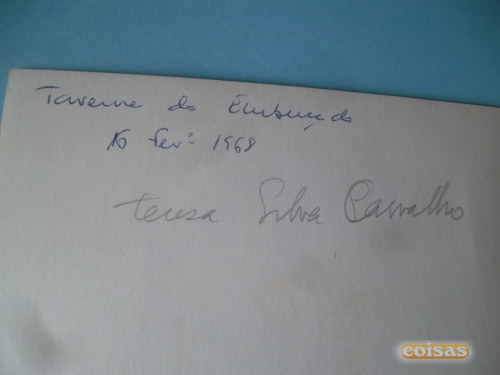 Taverna do Embuçado
16 Fevº 1968
teresa Silva Carvalho
coisas